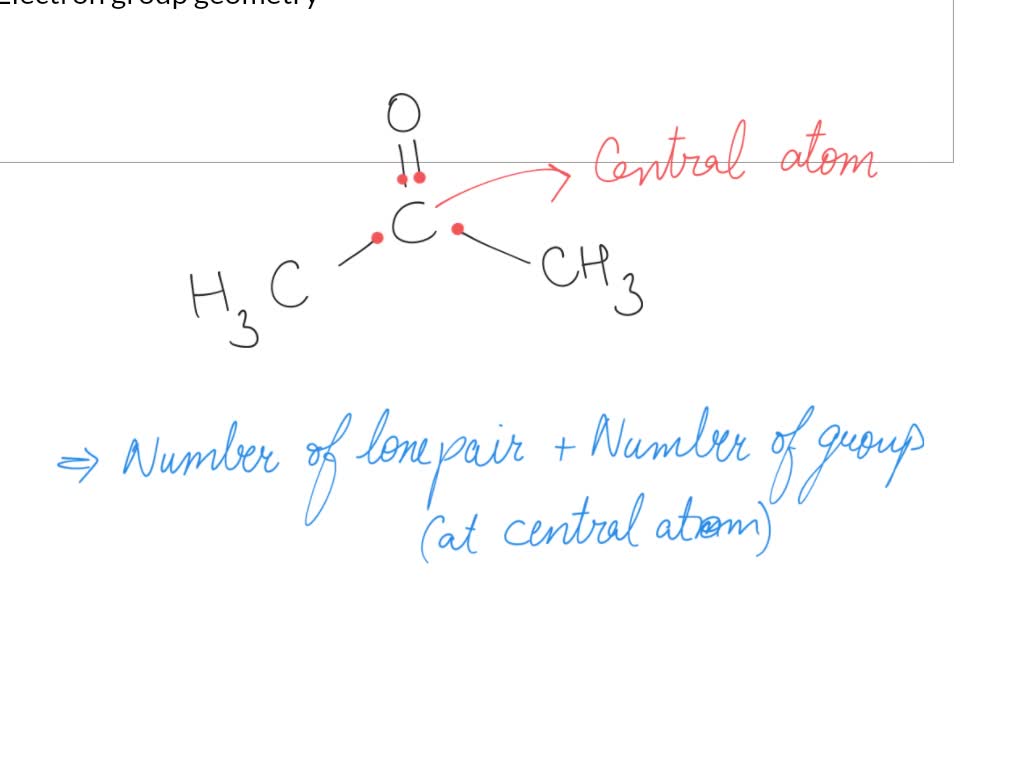 Electron group geometry
O
C
Central atom
H3C
CH3
⇒ Number of lone pair + Number of group
(at central atom)